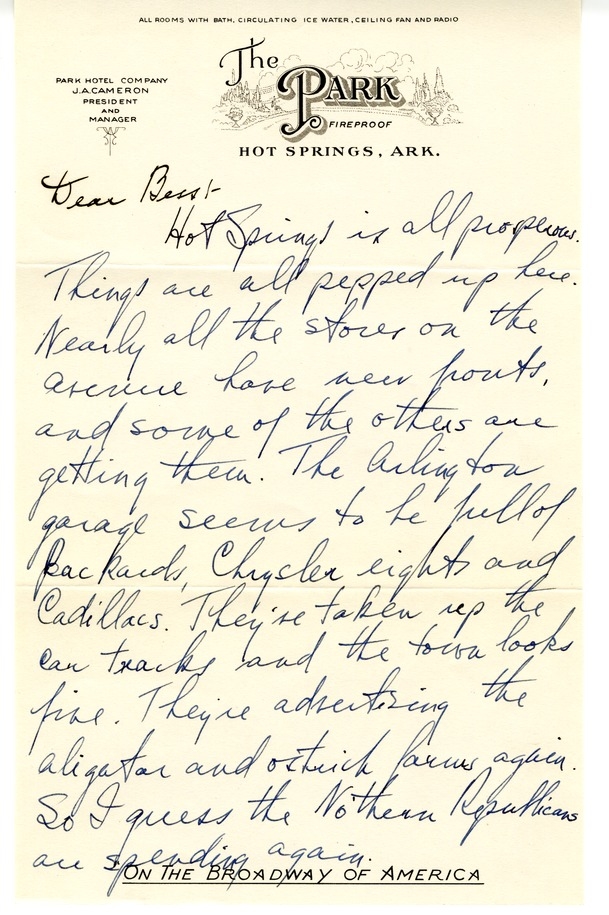 ALL ROOMS WITH BATH, CIRCULATING ICE WATER, CEILING FAN AND RADIO
PARK HOTEL COMPANY
J.A. CAMERON
PRESIDENT
AND
MANAGER
The
PARK
FIREPROOF
HOT SPRINGS, ARK.
Dear Bess:-
Hot Springs is all prosperous.
Things are all pepped up here.
Nearly all the stores on the
avenue have new fronts,
and some of the others are
getting them. The Arlington
garage seems to be full of
Packards, Chrysler eights and
Cadillacs. They're taken up the
car tracks and the town looks
fine. They're advertising the
aligator and ostrich farms again.
So I guess the Nothern Republicans
are spending again.
ON THE BROADWAY OF AMERICA